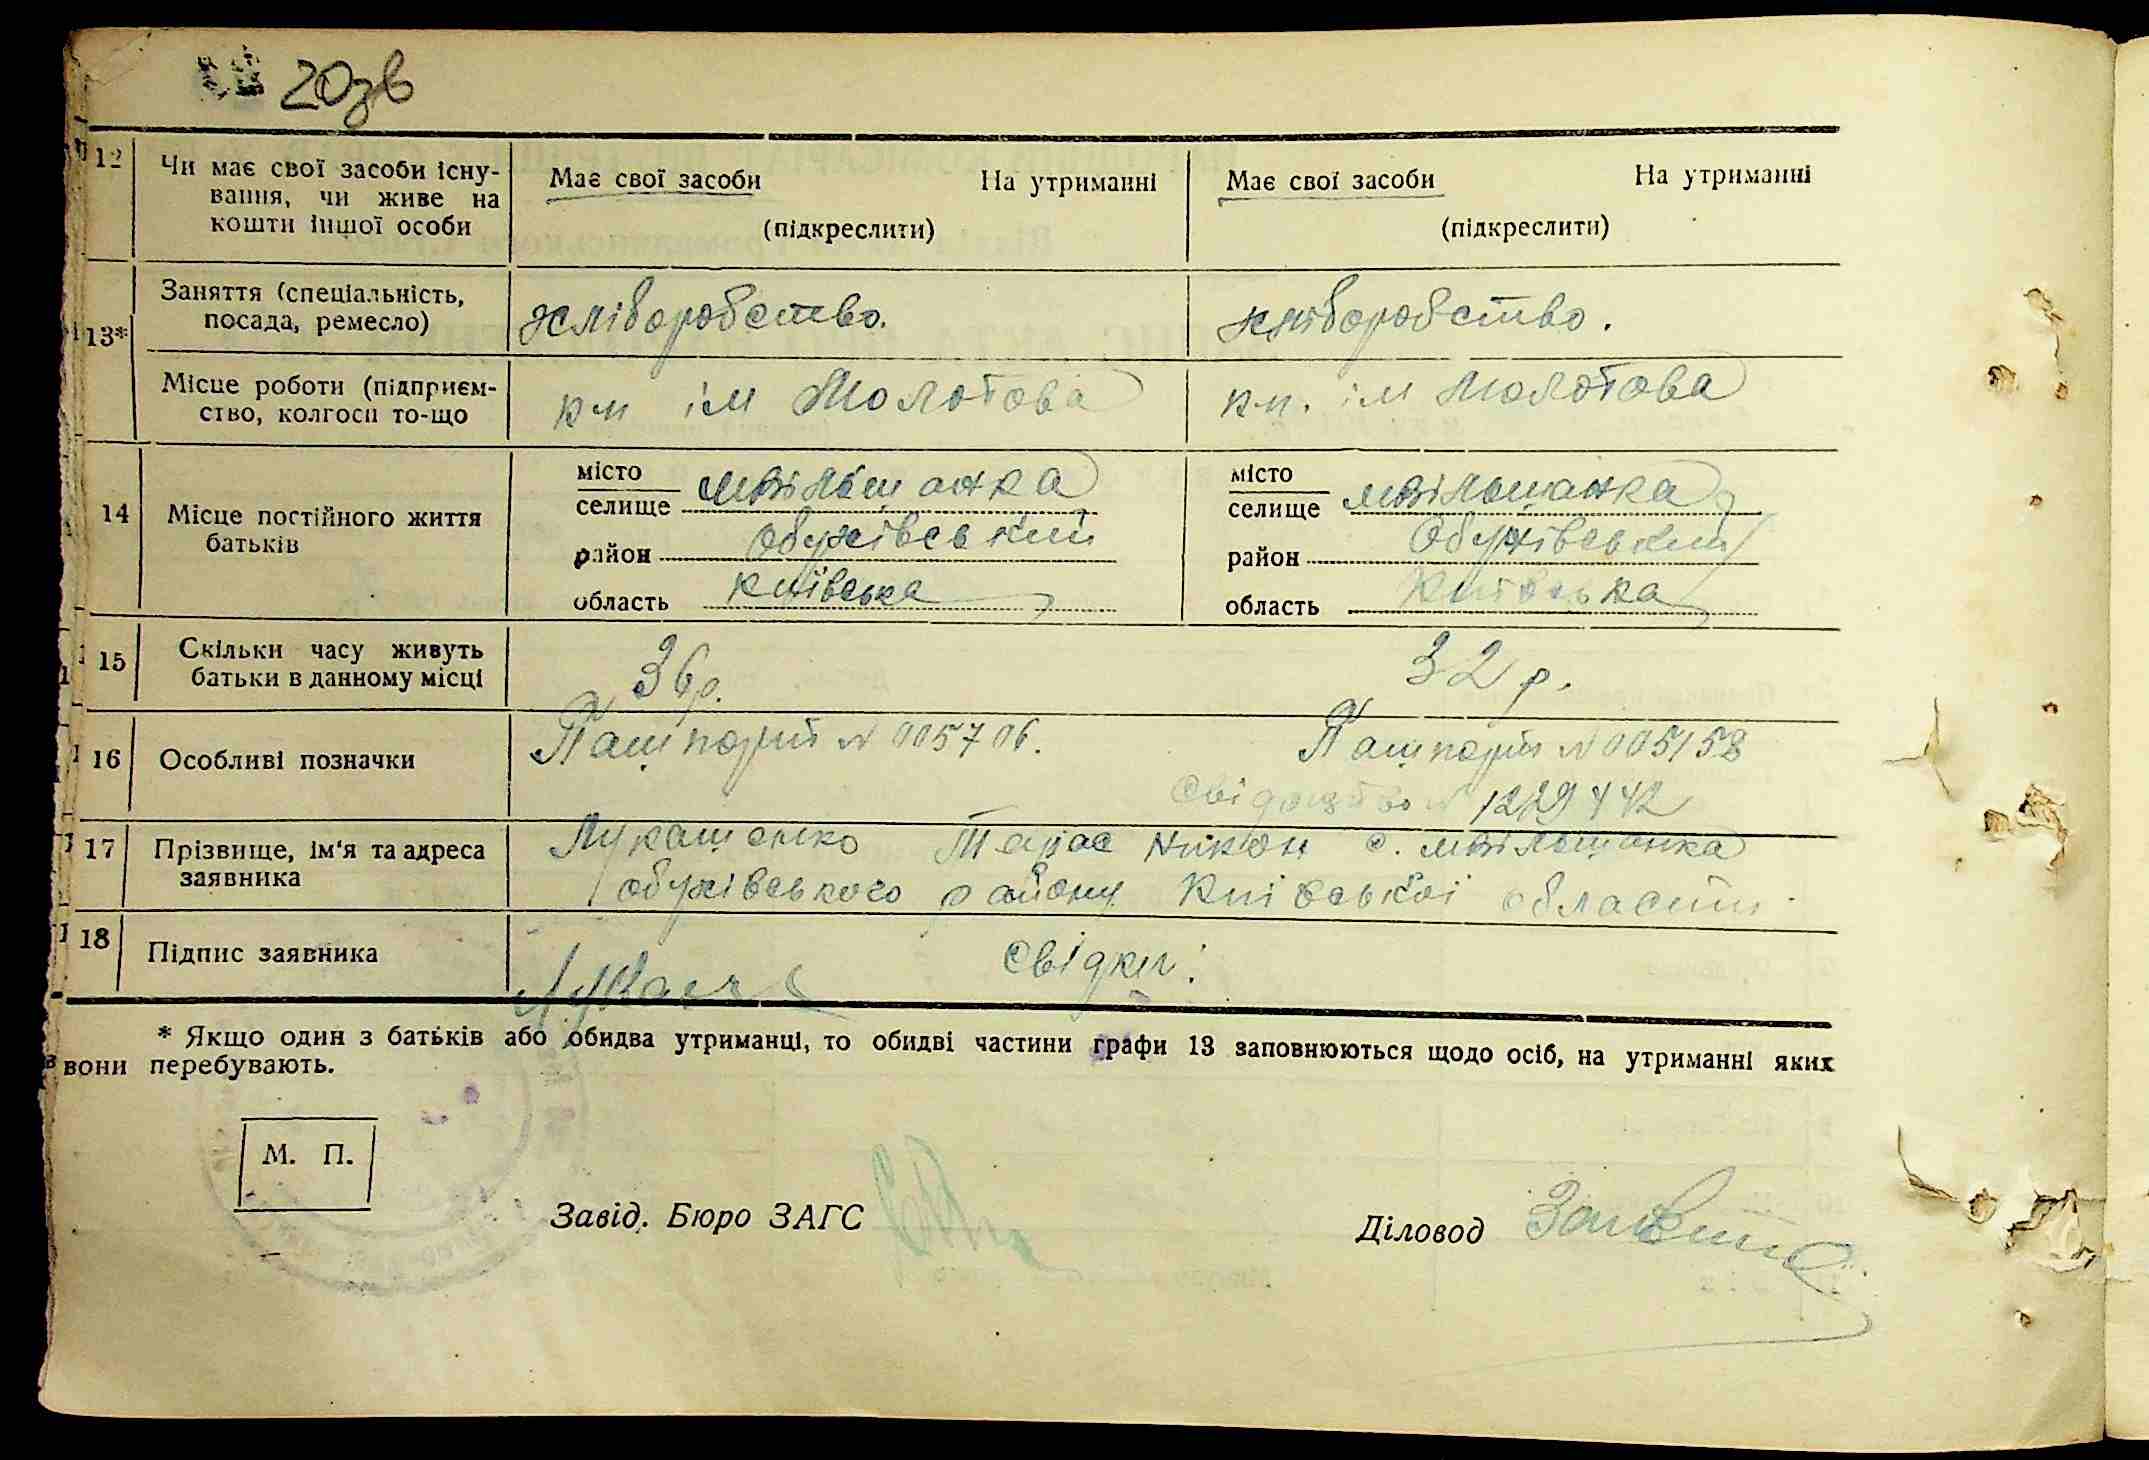 20зв
12 Чи має свої засоби існу- Має свої засоби На утриманні Має свої засоби На утриманні
вання, чи живе на
кошти іншої особи (підкреслити) (підкреслити)
Заняття (спеціальність,
посада, ремесло) хліборобство. хліборобство.
13*
Місце роботи (підприєм-
ство, колгосп то-що кл ім Молотова кл. ім Молотова
місто місто
селище мвільшанка селище мвільшанка
14 Місце постійного життя
батьків район Обухівський район Обухівський
область київська область Київська
15 Скільки часу живуть
батьки в данному місці 36р. 32 р.
16 Особливі позначки Пашпорт N 005706. Пашпорт N 005158
Свідоцтво N
17 Прізвище, ім'я та адреса Лукашенко Тарас Никон с. мвільшанка
заявника обухівського району Київської області
18 Підпис заявника свідки:
* Якщо один з батьків або обидва утриманці, то обидві частини графи 13 заповнюються щодо осіб, на утриманні яких
вони перебувають.
М. П.
Завід. Бюро ЗАГС Діловод